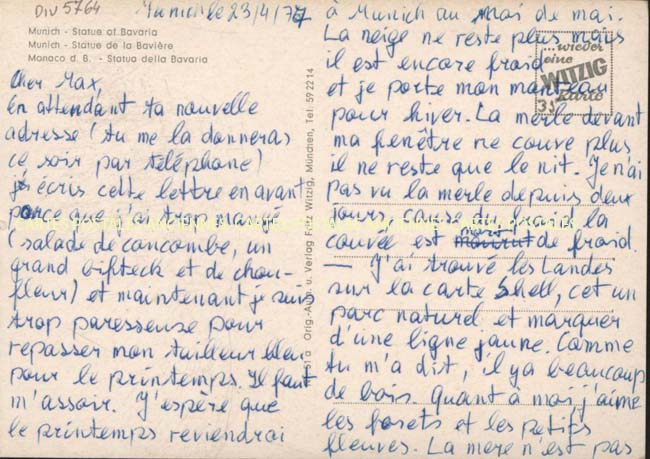 Div 5764
Munich le 23/4/77
Munich - Statue of Bavaria
Munich - Statue de la Bavière
Monaco d. B. - Statua della Bavaria
Cher Max,
En attendant ta nouvelle
adresse (tu me la donneras
ce soir par téléphone)
j'écris cette lettre en avant
parce que j'ai trop mangé
(salade de concombe, un
grand bifteck et de chou-
fleur) et maintenant je suis
trop paresseuse pour
repasser mon tailleur bleu
pour le printemps. Il faut
m'assoir. J'espère que
le printemps reviendrai
Orig.-Aufn. u. Verlag Fritz Witzig, München, Tel: 59 22 14
...wieder
eine
WITZIG
Karte
à Munich au moi de mai.
La neige ne reste plus mais
il est encore froid
et je porte mon manteau
pour hiver. La merle devant
ma fenêtre ne couve plus
il ne reste que le nit. Je n'ai
pas vu la merle depuis deux
jours, cause du froid la
couvée est mort de froid.
— J'ai trouvé les Landes
sur la carte Shell, cet un
parc naturel et marquer
d'une ligne jaune. Comme
tu m'a dit, il ya beaucoup
de bois. Quant à moi j'aime
les forets et les petits
fleuves. La mere n'est pas